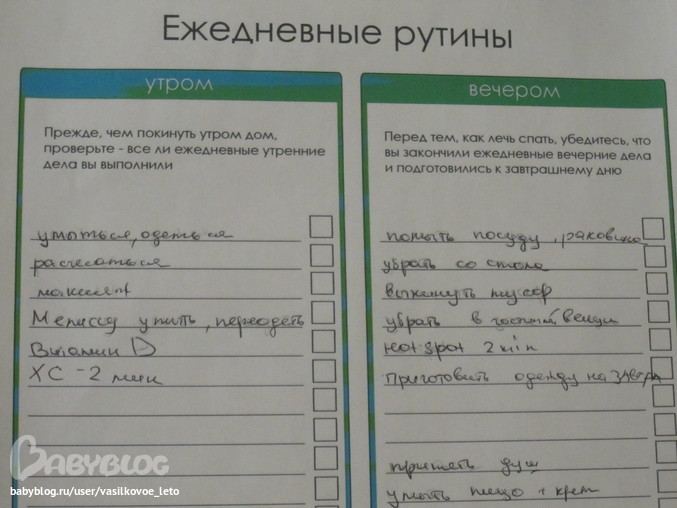 Ежедневные рутины
утром
Прежде, чем покинуть утром дом,
проверьте - все ли ежедневные утренние
дела вы выполнили
умыться, одеться
расчесаться
макияж
Мелиссу умыть, переодеть
Витамин D
ХС - 2 мин
вечером
Перед тем, как лечь спать, убедитесь, что
вы закончили ежедневные вечерние дела
и подготовились к завтрашнему дню
помыть посуду, раковину
убрать со стола
выкинуть мусор
убрать в гостиной вещи
Hot spot 2 min
Приготовить одежду на завтра
принять душ
умыть лицо + крем
BABYBLOG
babyblog.ru/user/vasilkovoe_leto